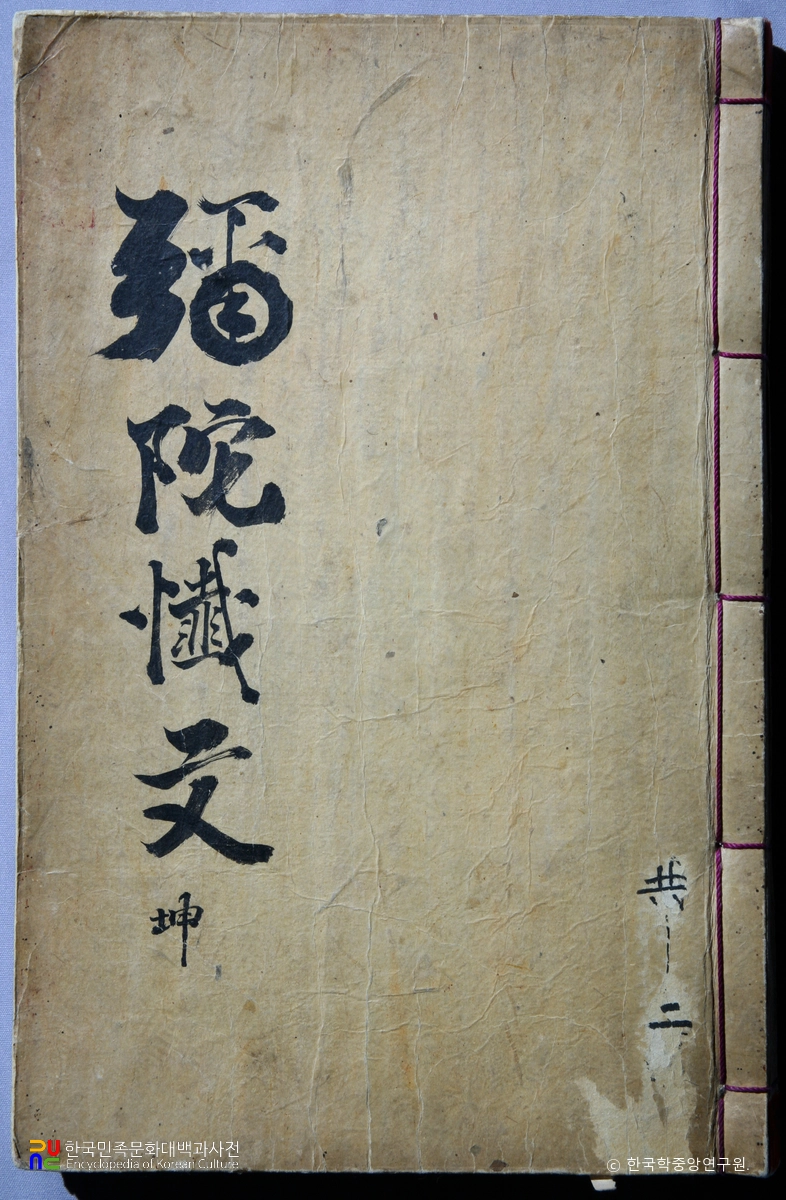 彌陀懺文 坤
共二
한국민족문화대백과사전
Encyclopedia of Korean Culture
© 한국학중앙연구원.